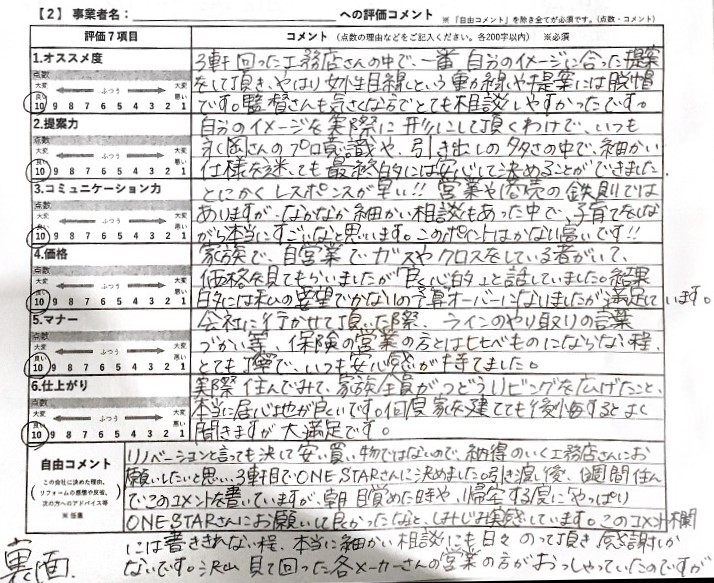 【2】事業者名: への評価コメント ※「自由コメント」を除き全てが必須です。(点数・コメント)
評価7項目 コメント(点数の理由などをご記入ください。各200字以内) ※必須
1.オススメ度
点数
大変良い ふつう 大変悪い
10 9 8 7 6 5 4 3 2 1
3軒回った工務店さんの中で、一番自分のイメージに合った提案
をして頂き、やはり女性目線という動線や提案には脱帽
です。監督さんも気さくな方でとても相談しやすかったです。
2.提案力
点数
大変良い ふつう 大変悪い
10 9 8 7 6 5 4 3 2 1
自分のイメージを実際に形にして頂くわけで、いつも
永岡さんのプロ意識や、引き出しの多さの中で、細かい
仕様を迷っても最終的には安心して決めることができました。
3.コミュニケーション力
点数
大変良い ふつう 大変悪い
10 9 8 7 6 5 4 3 2 1
とにかくレスポンスが早い!! 営業や接続の鉄則では
ありますが、なかなか細かい相談もあった中で、子育てをしな
がら本当にすごいなと思います。このポイントはかなり高いです!!
4.価格
点数
大変良い ふつう 大変悪い
10 9 8 7 6 5 4 3 2 1
家族で、自営業でガスやクロスをしている者がいて、
価格を見てもらいましたが「良心的」と話していました。結果
的には私の要望でかなりの予算オーバーになりましたが満足しています。
5.マナー
点数
大変良い ふつう 大変悪い
10 9 8 7 6 5 4 3 2 1
会社に行かせて頂いた際、ラインのやり取りの言葉
づかい等、保険の営業の方とは比べものにならない程、
とても丁寧で、いつも安心感が持てました。
6.仕上がり
点数
大変良い ふつう 大変悪い
10 9 8 7 6 5 4 3 2 1
実際住んでみて、家族全員がつどうリビングを広げたこと、
本当に居心地が良いです。何度家を建てても後悔するとよく
聞きますが大満足です。
自由コメント
この会社に決めた理由、
リフォームの感想や反省、
次の方へのアドバイス等
※任意
リノベーションと言っても決して安い買い物ではないので、納得のいく工務店さんにお
願いしたいと思い、3軒目でONE STARさんに決めました。引き渡し後、1週間住ん
でこのコメントを書いていますが、朝目覚めた時や、帰宅する度に、やっぱり
ONE STARさんにお願いして良かったなと、しみじみ実感しています。このコメント欄
には書ききれない程、本当に細かい相談にも日々のって頂き感謝しか
ないです。沢山見て回った各メーカーさんの営業の方がおっしゃっていたのですが
裏面.